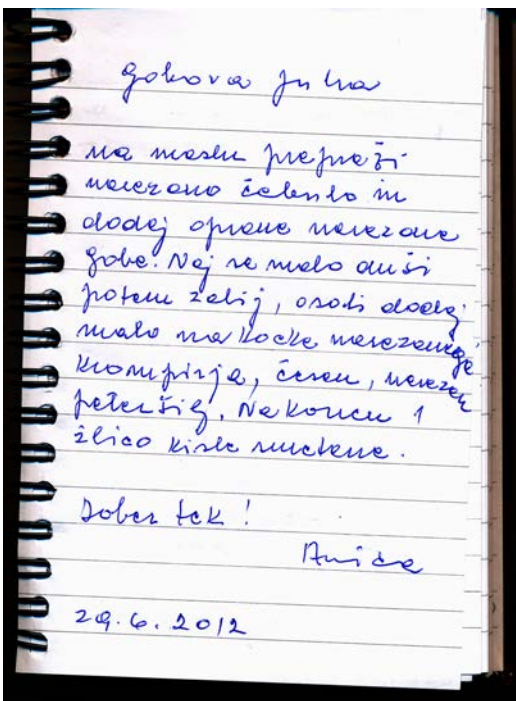 gobova juha
na maslu prepraži
narezano čebulo in
dodaj oprane narezane
gobe. Naj se malo duši
potem zalij, osoli dodaj
malo na kocke narezanega
krompirja, česen, narezan
peteršilj. Na koncu 1
žlico kisle smetane.
Dober tek!
Anica
29.6.2012